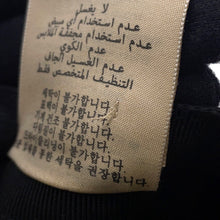 لا يغسل
عدم استخدام أي مبيض
عدم استخدام مجففة الملابس
عدم الكوي
عدم الغسيل الجاف
التنظيف المتخصص فقط
세탁이 불가합니다.
표백이 불가합니다.
기계 건조 불가합니다.
다림질이 불가합니다.
드라이클리닝이 불가합니다.
통한 세탁을 권장합니다.